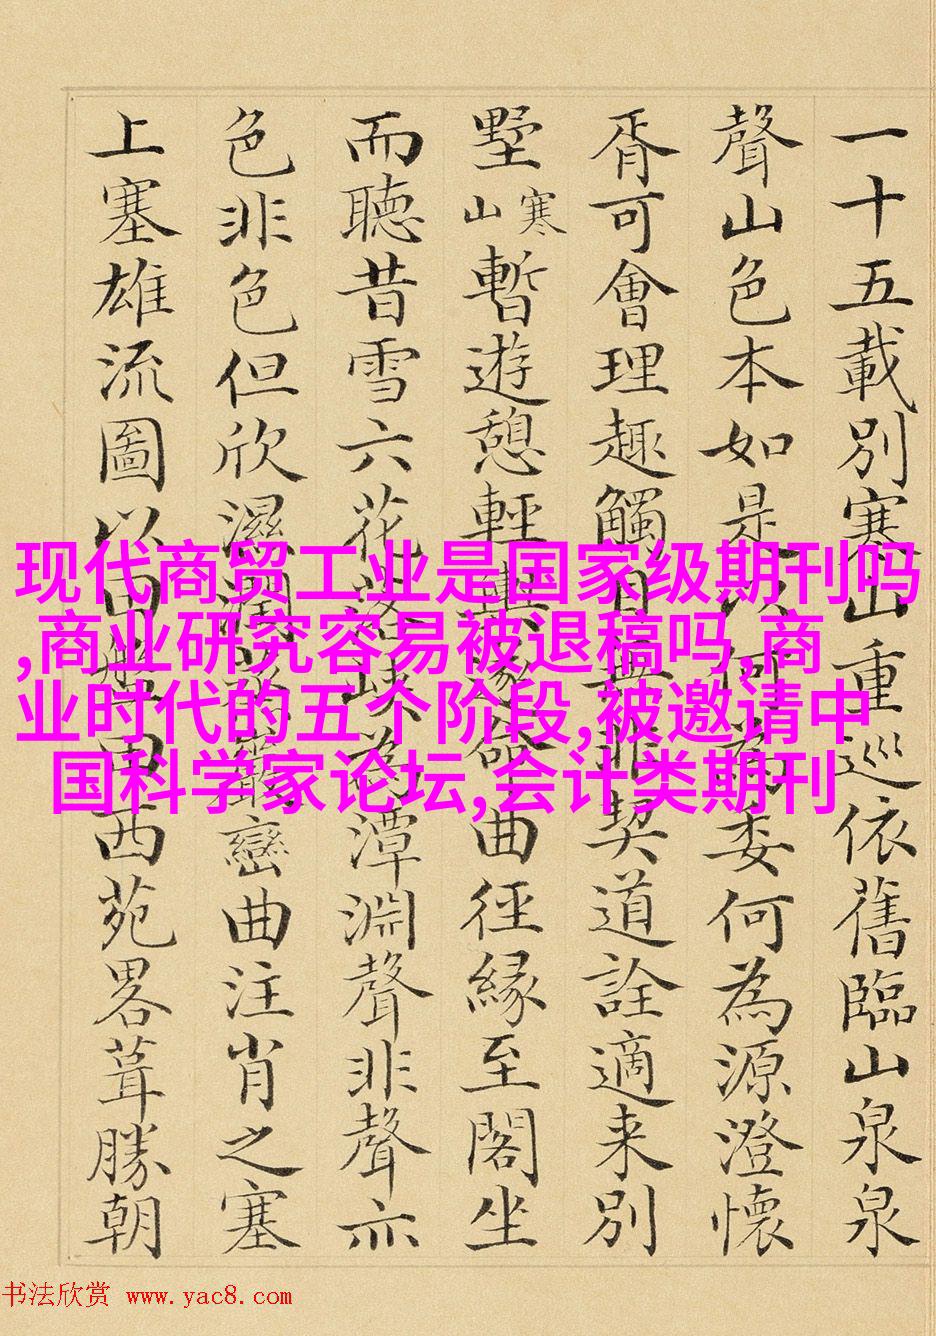 一十五載別寒山重巡依舊臨山泉泉
聲山色本如是以何為委何為源澄懷
胥可會理趣觸目無非契道詮適来別
墅寒山暫遊憩輕輿遂命曲徑緣至閣坐
而聽昔雪六花落峡為潭淵聲非聲亦
色非色但欣濕潤資巖巒曲注肖之塞
上塞雄流圖以田盤田西苑畧葺勝朝
现代商贸工业是国家级期刊吗
,商业研究容易被退稿吗,商
业时代的五个阶段,被邀请中
国科学家论坛,会计类期刊
书法欣赏 www.yac8.com